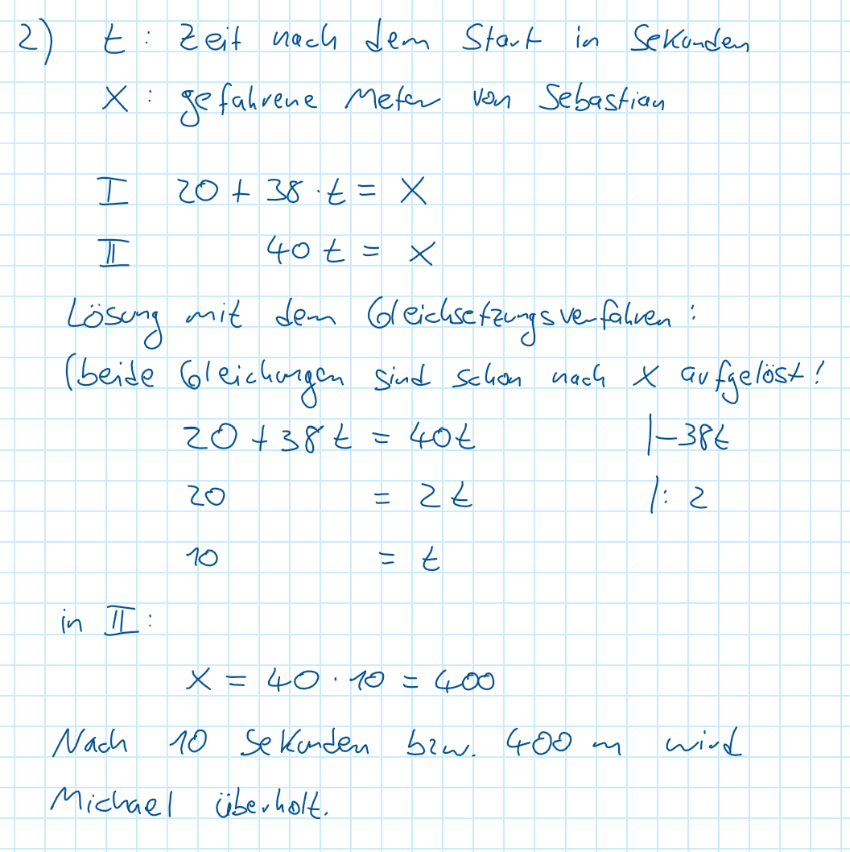 2) t : Zeit nach dem Start in Sekunden
x : gefahrene Meter von Sebastian
I 20 + 38 · t = x
II 40 t = x
Lösung mit dem Gleichsetzungsverfahren :
(beide Gleichungen sind schon nach x aufgelöst!
20 + 38 t = 40t |-38t
20 = 2 t |: 2
10 = t
in II :
x = 40 · 10 = 400
Nach 10 Sekunden bzw. 400 m wird
Michael überholt.